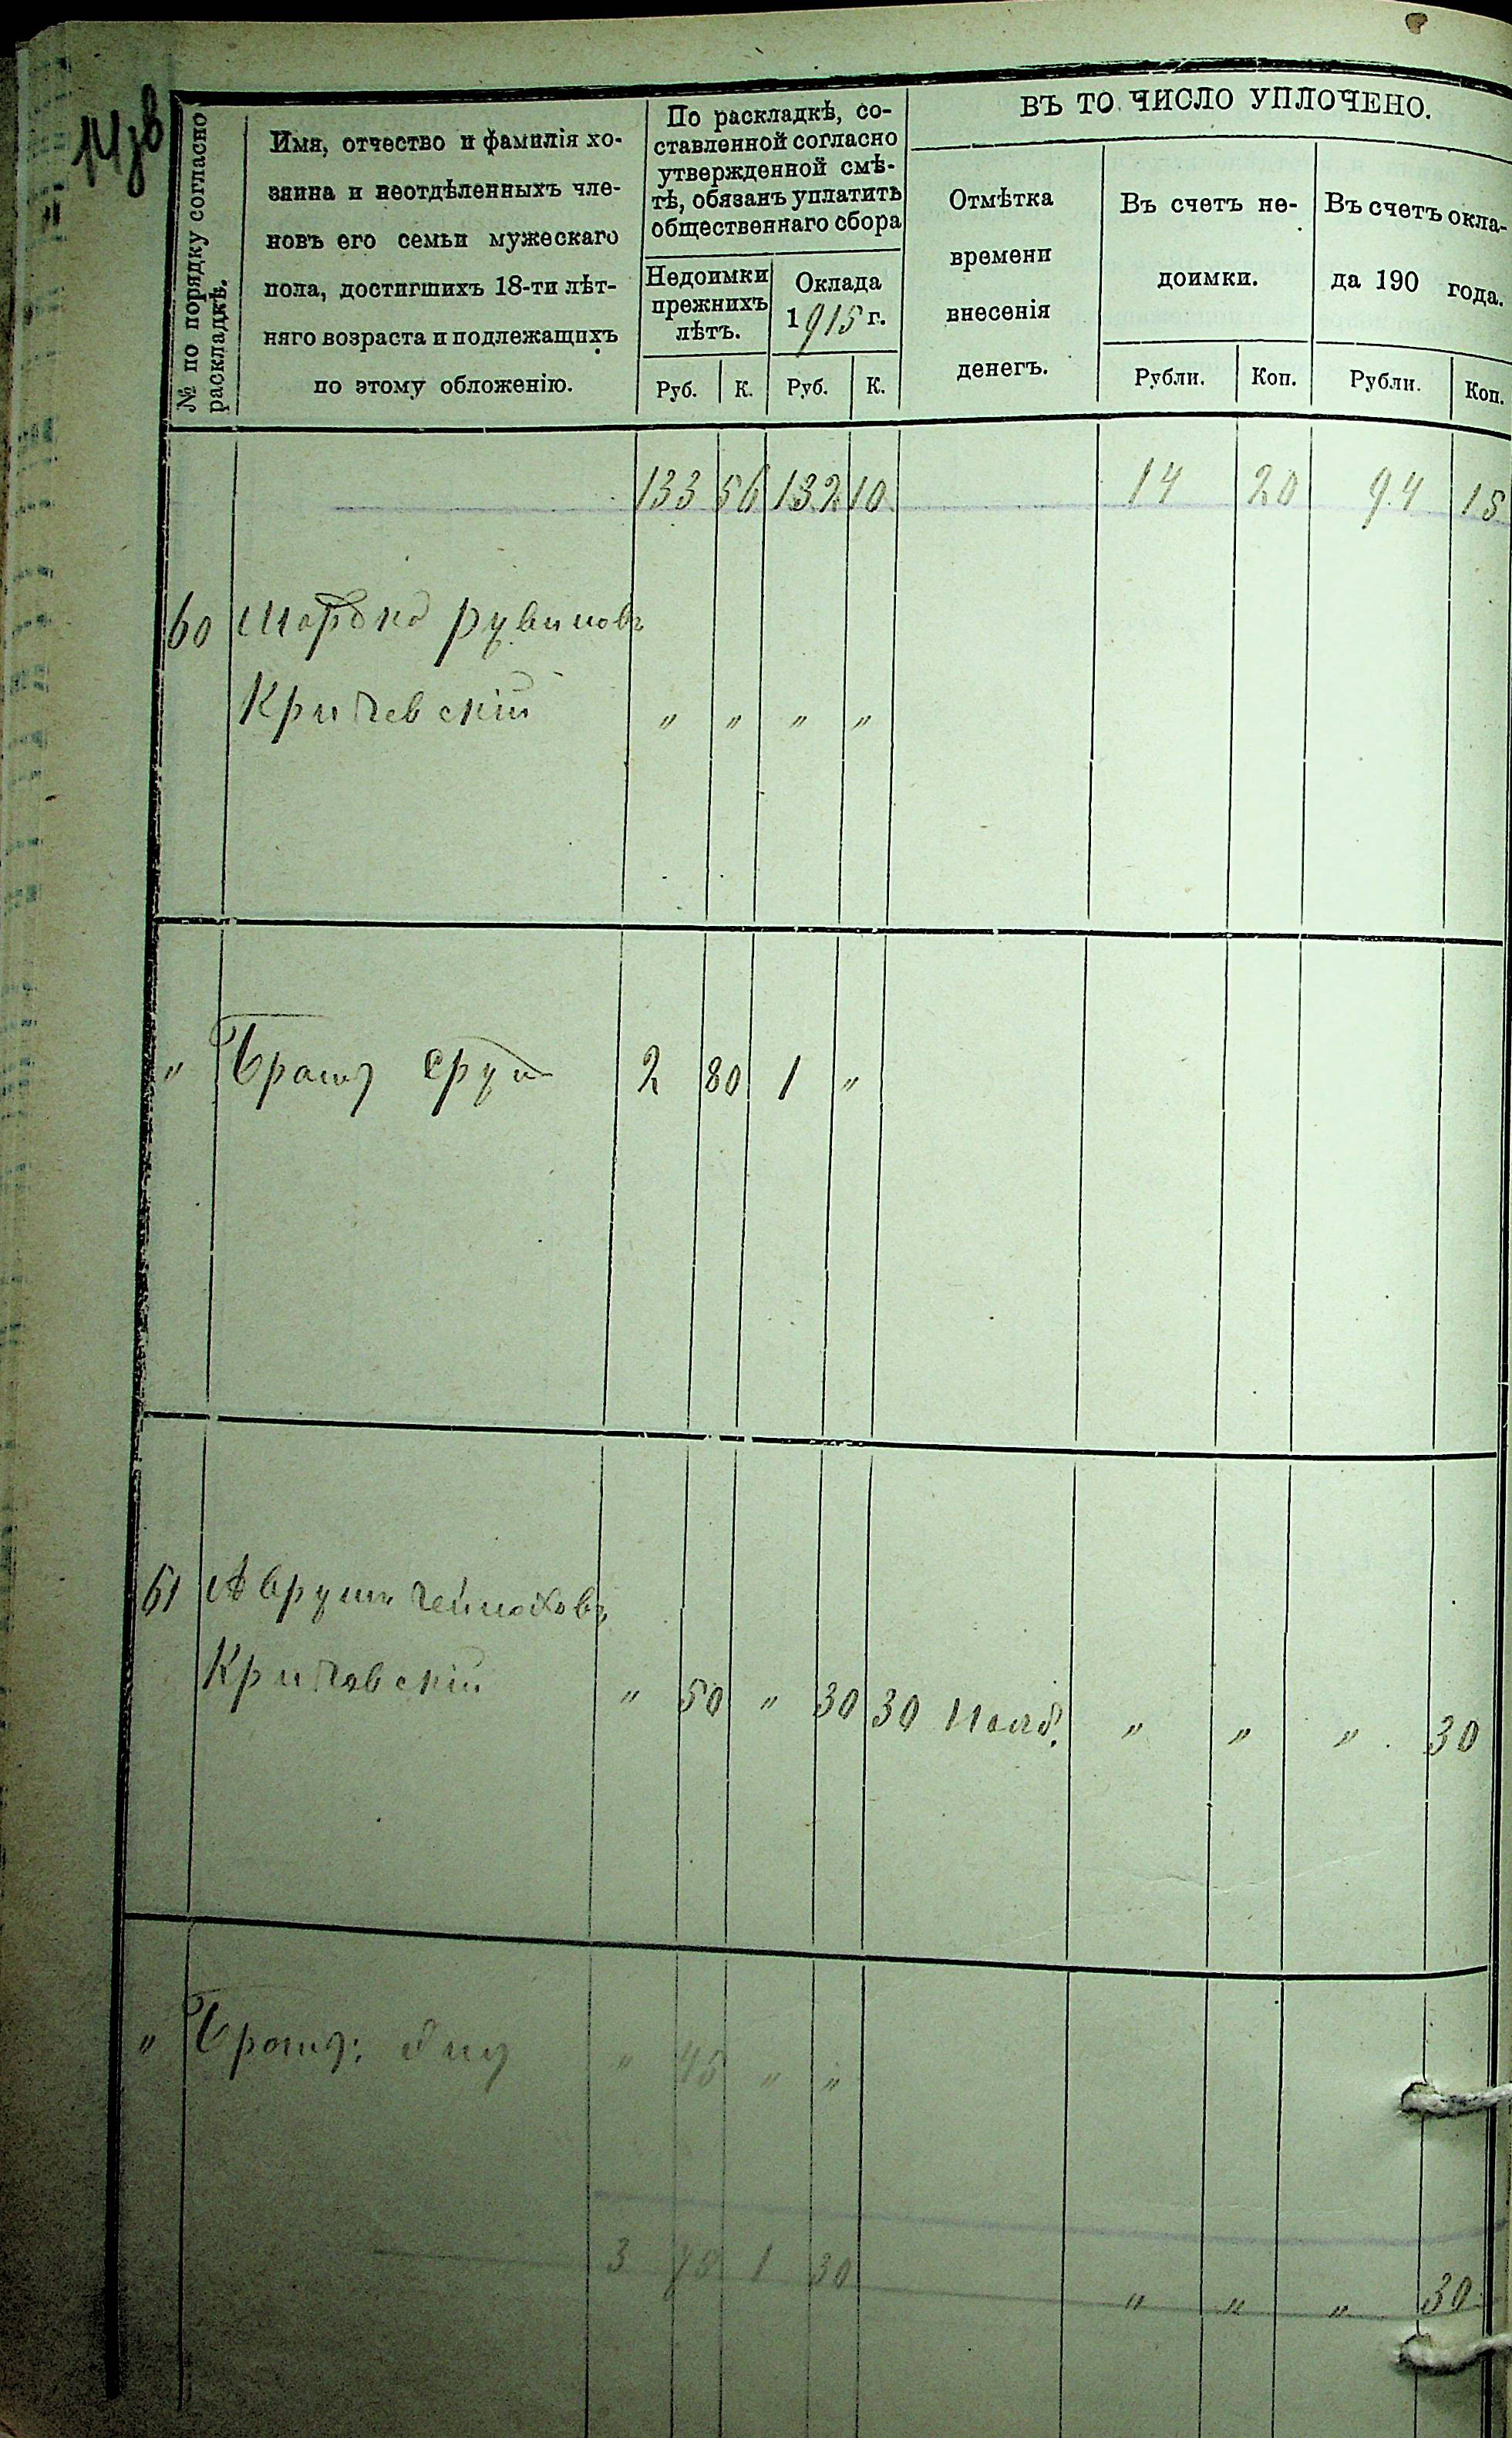 ВЪ ТО ЧИСЛО УПЛОЧЕНО.
№ по порядку согласно
раскладкѣ.
Имя, отчество и фамилія хо-
зяина и неотдѣленныхъ чле-
новъ его семьи мужескаго
пола, достигшихъ 18-ти лѣт-
няго возраста и подлежащихъ
по этому обложенію.
По раскладкѣ, со-
ставленной согласно
утвержденной смѣ-
тѣ, обязанъ уплатить
общественнаго сбора
Недоимки
прежнихъ
лѣтъ.
Оклада
1915 г.
Отмѣтка
времени
внесенія
денегъ.
Въ счетъ не-
доимки.
Въ счетъ окла-
да 190 года.
Руб. К. Руб. К. Рубли. Коп. Рубли. Коп.
133 56 132 10 14 20 94 15
60 Мордко Рувиновъ
Кричевскій " " " "
" Брату 2 80 1 "
61 Аврумъ
Кричевскій " 50 " 30 30 Нояб. " " " 30
" Брату: " 45 " "
3 75 1 30 " " " 30